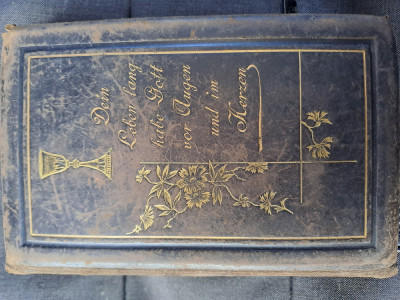 Dein
Leben lang
habe Gott
vor Augen
und im
Herzen